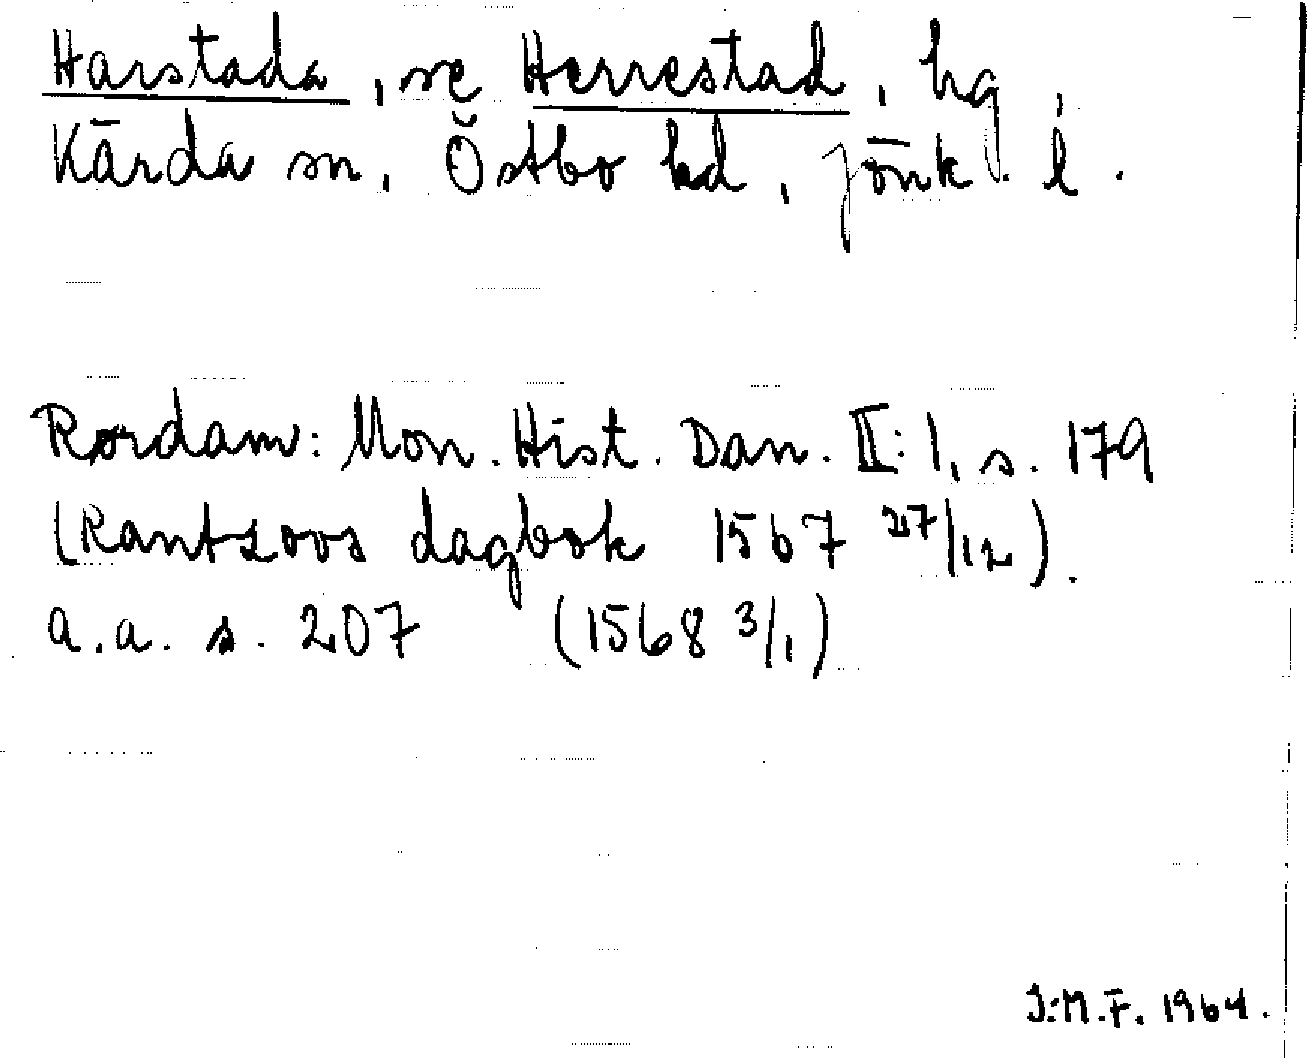 Harstada, se Herrestad, hg,
Kärda sn, Östbo hd, Jönk. l.
Rørdam: Mon. Hist. Dan. II:1, s. 179
(Rantzovs dagbok 1567 27/12).
a.a. s. 207 (1568 3/1)
J:M.F. 1964.